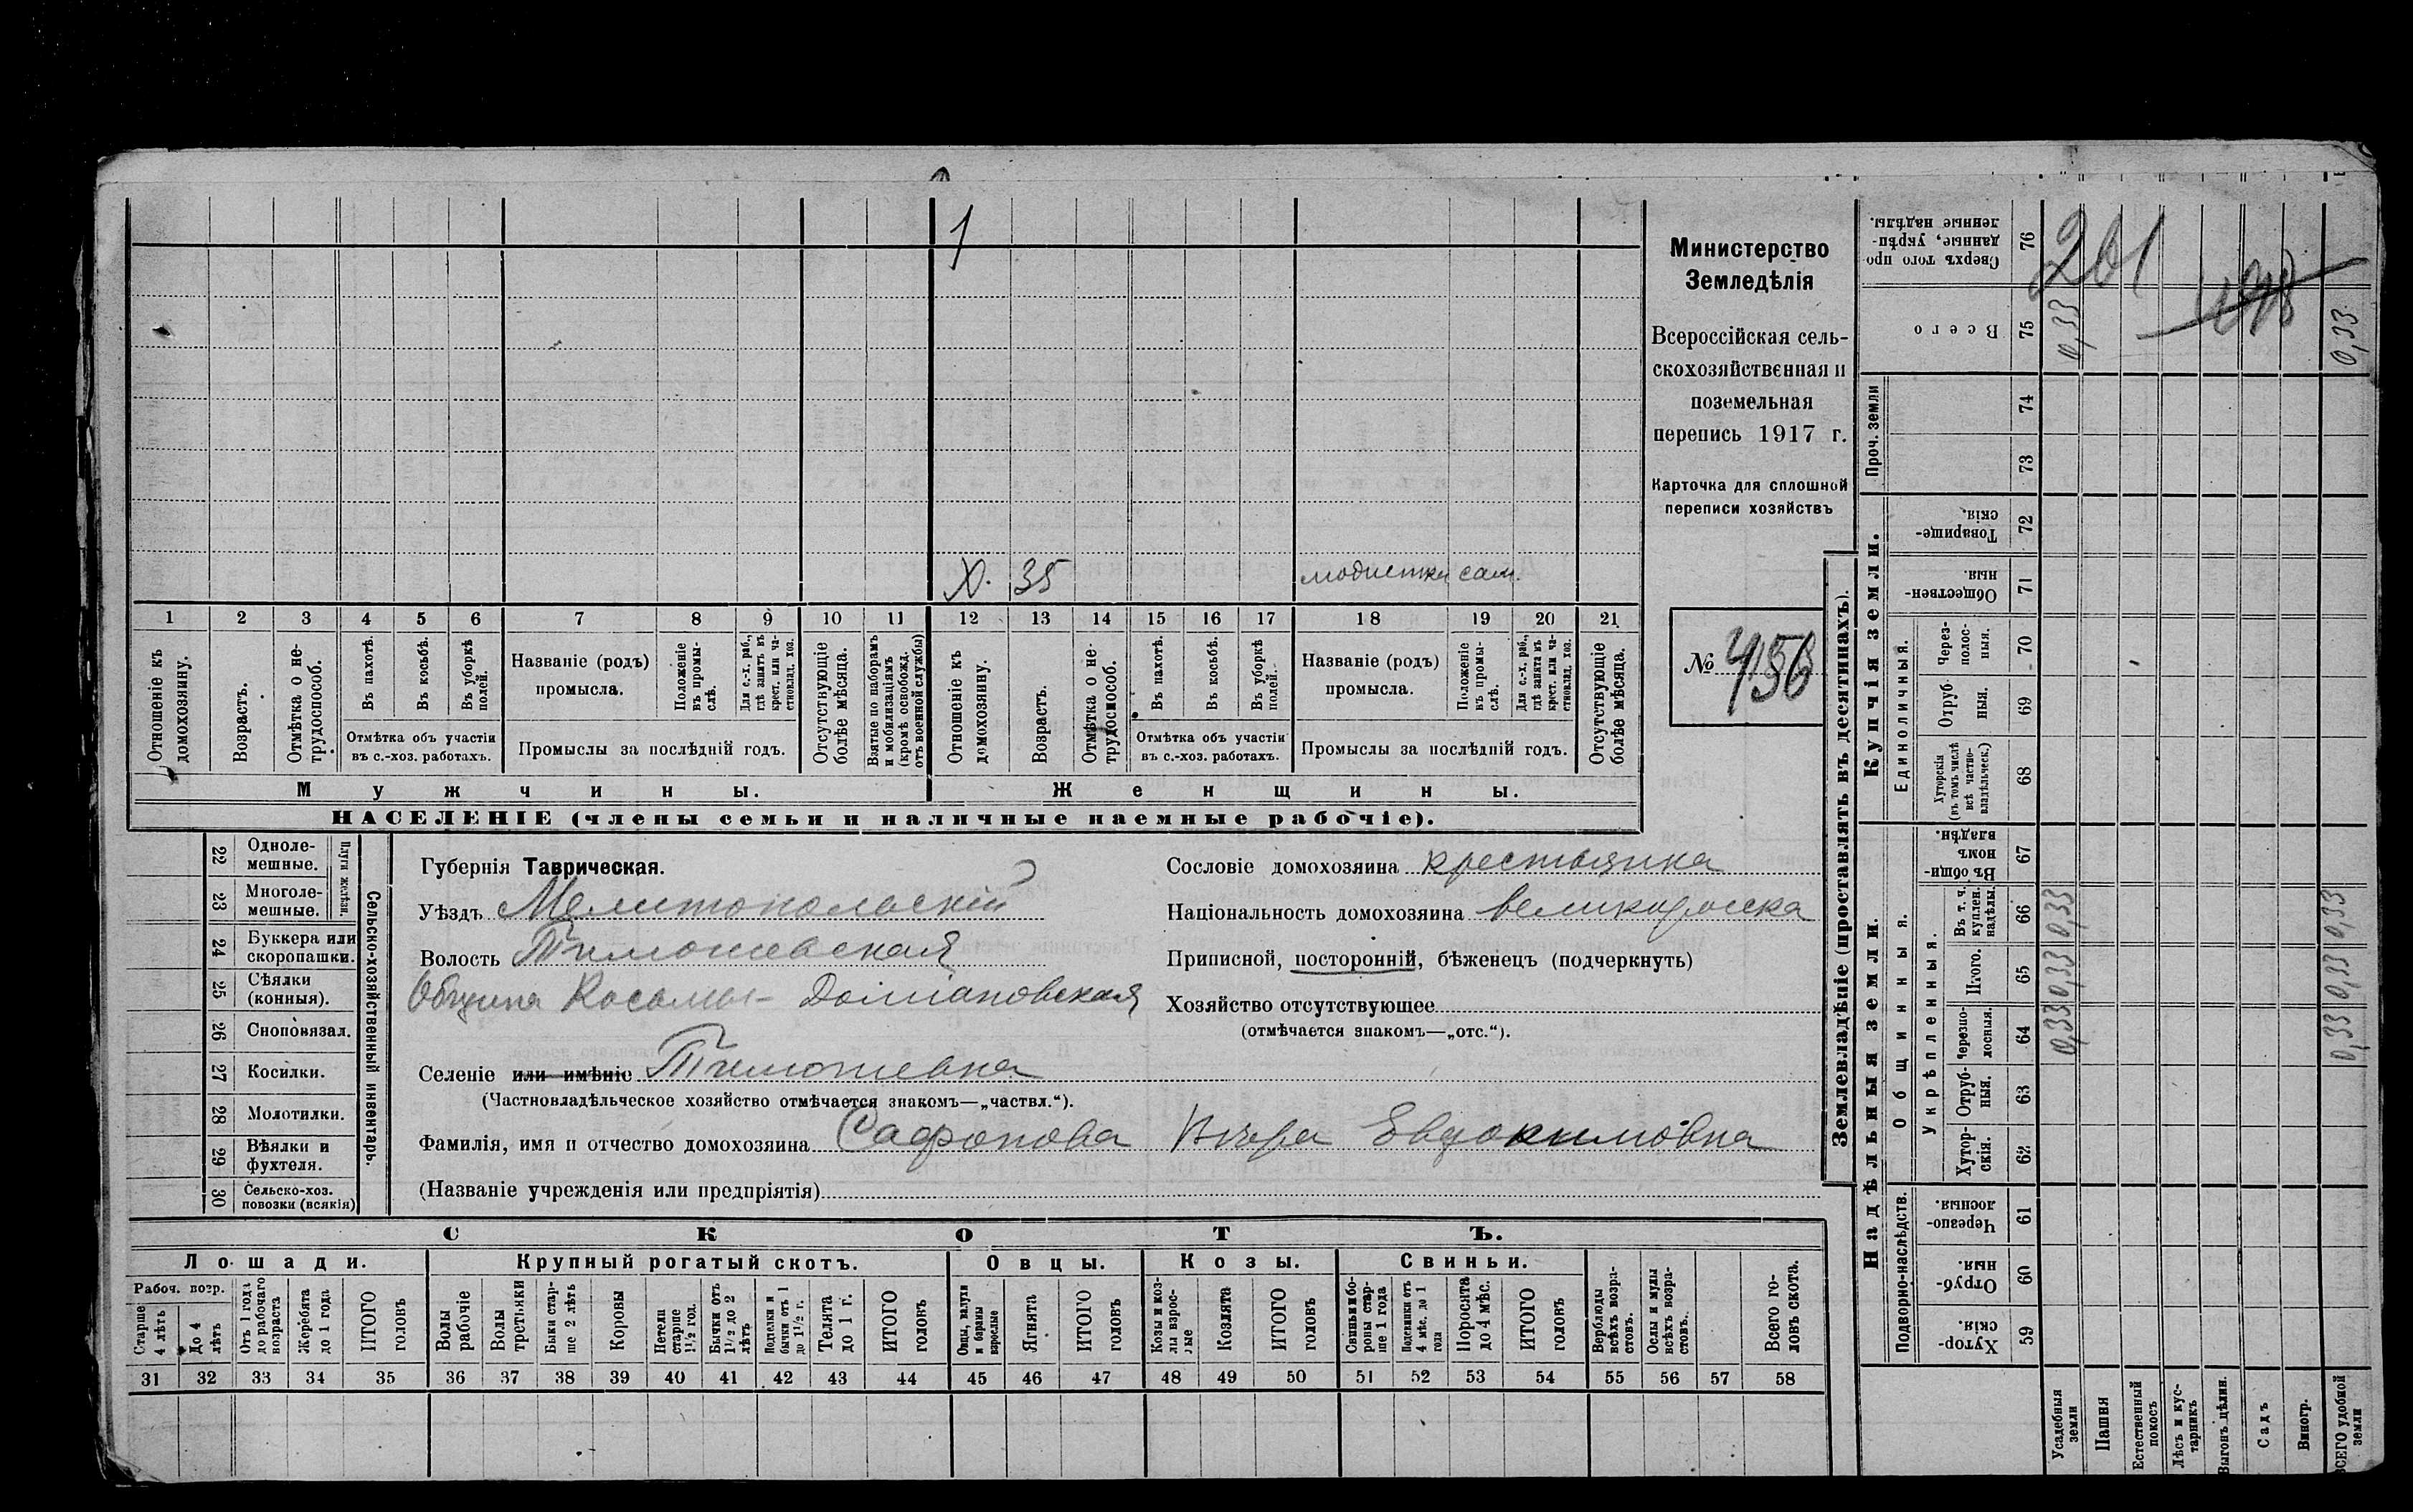 1
Х. 35 модистка сам.
1 2 3 4 5 6 7 8 9 10 11 12 13 14 15 16 17 18 19 20 21
Отношеніе къ домохозяину.
Возрастъ.
Отмѣтка о нетрудоспособ.
Въ пахотѣ.
Въ косьбѣ.
Въ уборкѣ полей.
Отмѣтка объ участіи
въ с.-хоз. работахъ.
Названіе (родъ)
промысла.
Положеніе въ промыслѣ.
Для с.-х. раб., гдѣ занятъ въ крест. или частновлад. хоз.
Промыслы за послѣдній годъ.
Отсутствующіе болѣе мѣсяца.
Взятые по наборамъ и мобилизаціямъ (кромѣ освобожд. отъ военной службы)
Отношеніе къ домохозяину.
Возрастъ.
Отмѣтка о нетрудоспособ.
Въ пахотѣ.
Въ косьбѣ.
Въ уборкѣ полей.
Отмѣтка объ участіи
въ с.-хоз. работахъ.
Названіе (родъ)
промысла.
Положеніе въ промыслѣ.
Для с.-х. раб., гдѣ занята въ крест. или частновлад. хоз.
Промыслы за послѣдній годъ.
Отсутствующіе болѣе мѣсяца.
Мужчины. Женщины.
НАСЕЛЕНІЕ (члены семьи и наличные наемные рабочіе).
Министерство
Земледѣлія
Всероссійская сель-
скохозяйственная и
поземельная
перепись 1917 г.
Карточка для сплошной
переписи хозяйствъ
№ 456
22 Однолемешные.
23 Многолемешные.
Плуги желѣзн.
24 Буккера или скоропашки.
25 Сѣялки (конныя).
26 Сноповязал.
27 Косилки.
28 Молотилки.
29 Вѣялки и фухтеля.
30 Сельско-хоз. повозки (всякія)
Сельско-хозяйственный инвентарь.
Губернія Таврическая.
Уѣздъ Мелитопольскій
Волость Тимошевская
Община Косьмы-Даміановская
Селеніе или имѣніе Тимошевка
(Частновладѣльческое хозяйство отмѣчается знакомъ—„частвл.“).
Фамилія, имя и отчество домохозяина Сафонова Вѣра Евдокимовна
(Названіе учрежденія или предпріятія)
Сословіе домохозяина крестьянка
Національность домохозяина великоросска
Приписной, посторонній, бѣженецъ (подчеркнуть)
Хозяйство отсутствующее
(отмѣчается знакомъ—„отс.“).
СКОТЪ.
Лошади. Крупный рогатый скотъ. Овцы. Козы. Свиньи.
Рабоч. возр.
Старше 4 лѣтъ
До 4 лѣтъ
Отъ 1 года до рабочаго возраста
Жеребята до 1 года
ИТОГО головъ
Волы рабочіе
Волы третьяки
Быки старше 2 лѣтъ
Коровы
Нетели старше 1½ год.
Бычки отъ 1½ до 2 лѣтъ
Подтелки и бычки отъ 1 до 1½ г.
Телята до 1 г.
ИТОГО головъ
Овцы, валухи и бараны взрослые
Ягнята
ИТОГО головъ
Козы и козлы взрослые
Козлята
ИТОГО головъ
Свиньи и боровы старше 1 года
Подсвинки отъ 4 мѣс. до 1 года
Поросята до 4 мѣс.
ИТОГО головъ
Верблюды всѣхъ возрастовъ.
Ослы и мулы всѣхъ возрастовъ.
Всего головъ скота.
31 32 33 34 35 36 37 38 39 40 41 42 43 44 45 46 47 48 49 50 51 52 53 54 55 56 57 58
Землевладѣніе (проставлять въ десятинахъ).
Сверхъ того проданные, укрѣпленные надѣлы. 76
201
Всего 75 0,33 0,33
Проч. земли 74 73
Купчія земли.
Товарищескія. 72
Общественныя 71
Единоличныя.
Черезполосныя. 70
Отрубныя. 69
Хуторскія (въ томъ числѣ всѣ частновладѣльческ.) 68
Надѣльныя земли.
Общинныя.
Въ общинномъ владѣн. 67
Укрѣпленныя.
Въ т. ч. куплен. надѣлы. 66 0,33 0,33
Итого. 65 0,33 0,33
Черезполосныя. 64 0,33 0,33
Отрубныя. 63
Хуторскія. 62
Подворно-наслѣдств.
Черезполосныя. 61
Отрубныя. 60
Хуторскія. 59
Усадебныя земли
Пашня
Естественный покосъ
Лѣсъ и кустарникъ
Выгонъ цѣлин.
Садъ
Виногр.
ВСЕГО удобной земли